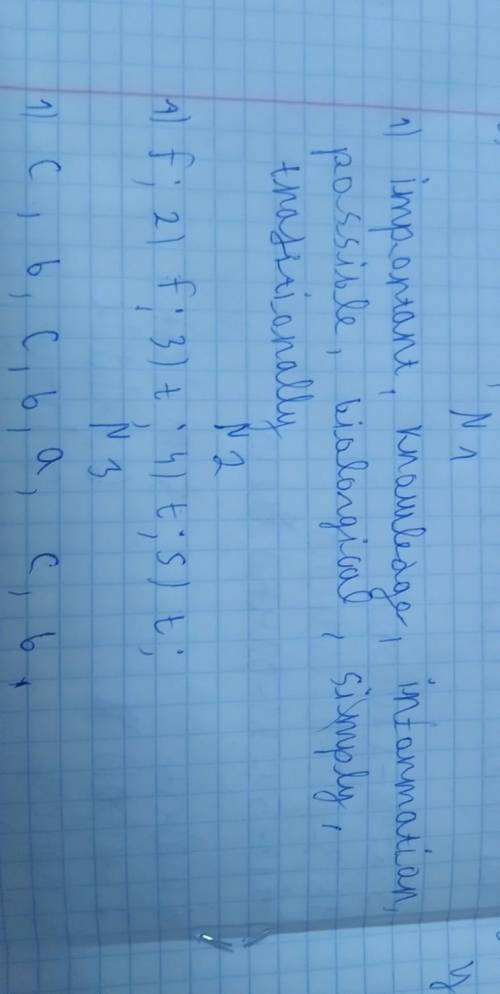 N 1
1) important, knowledge, information,
possible, bialongical, simply,
traditionally
N 2
1) f; 2) f; 3) t; 4) t; 5) t;
N 3
1) C, b, C, b, a, c, b,
y